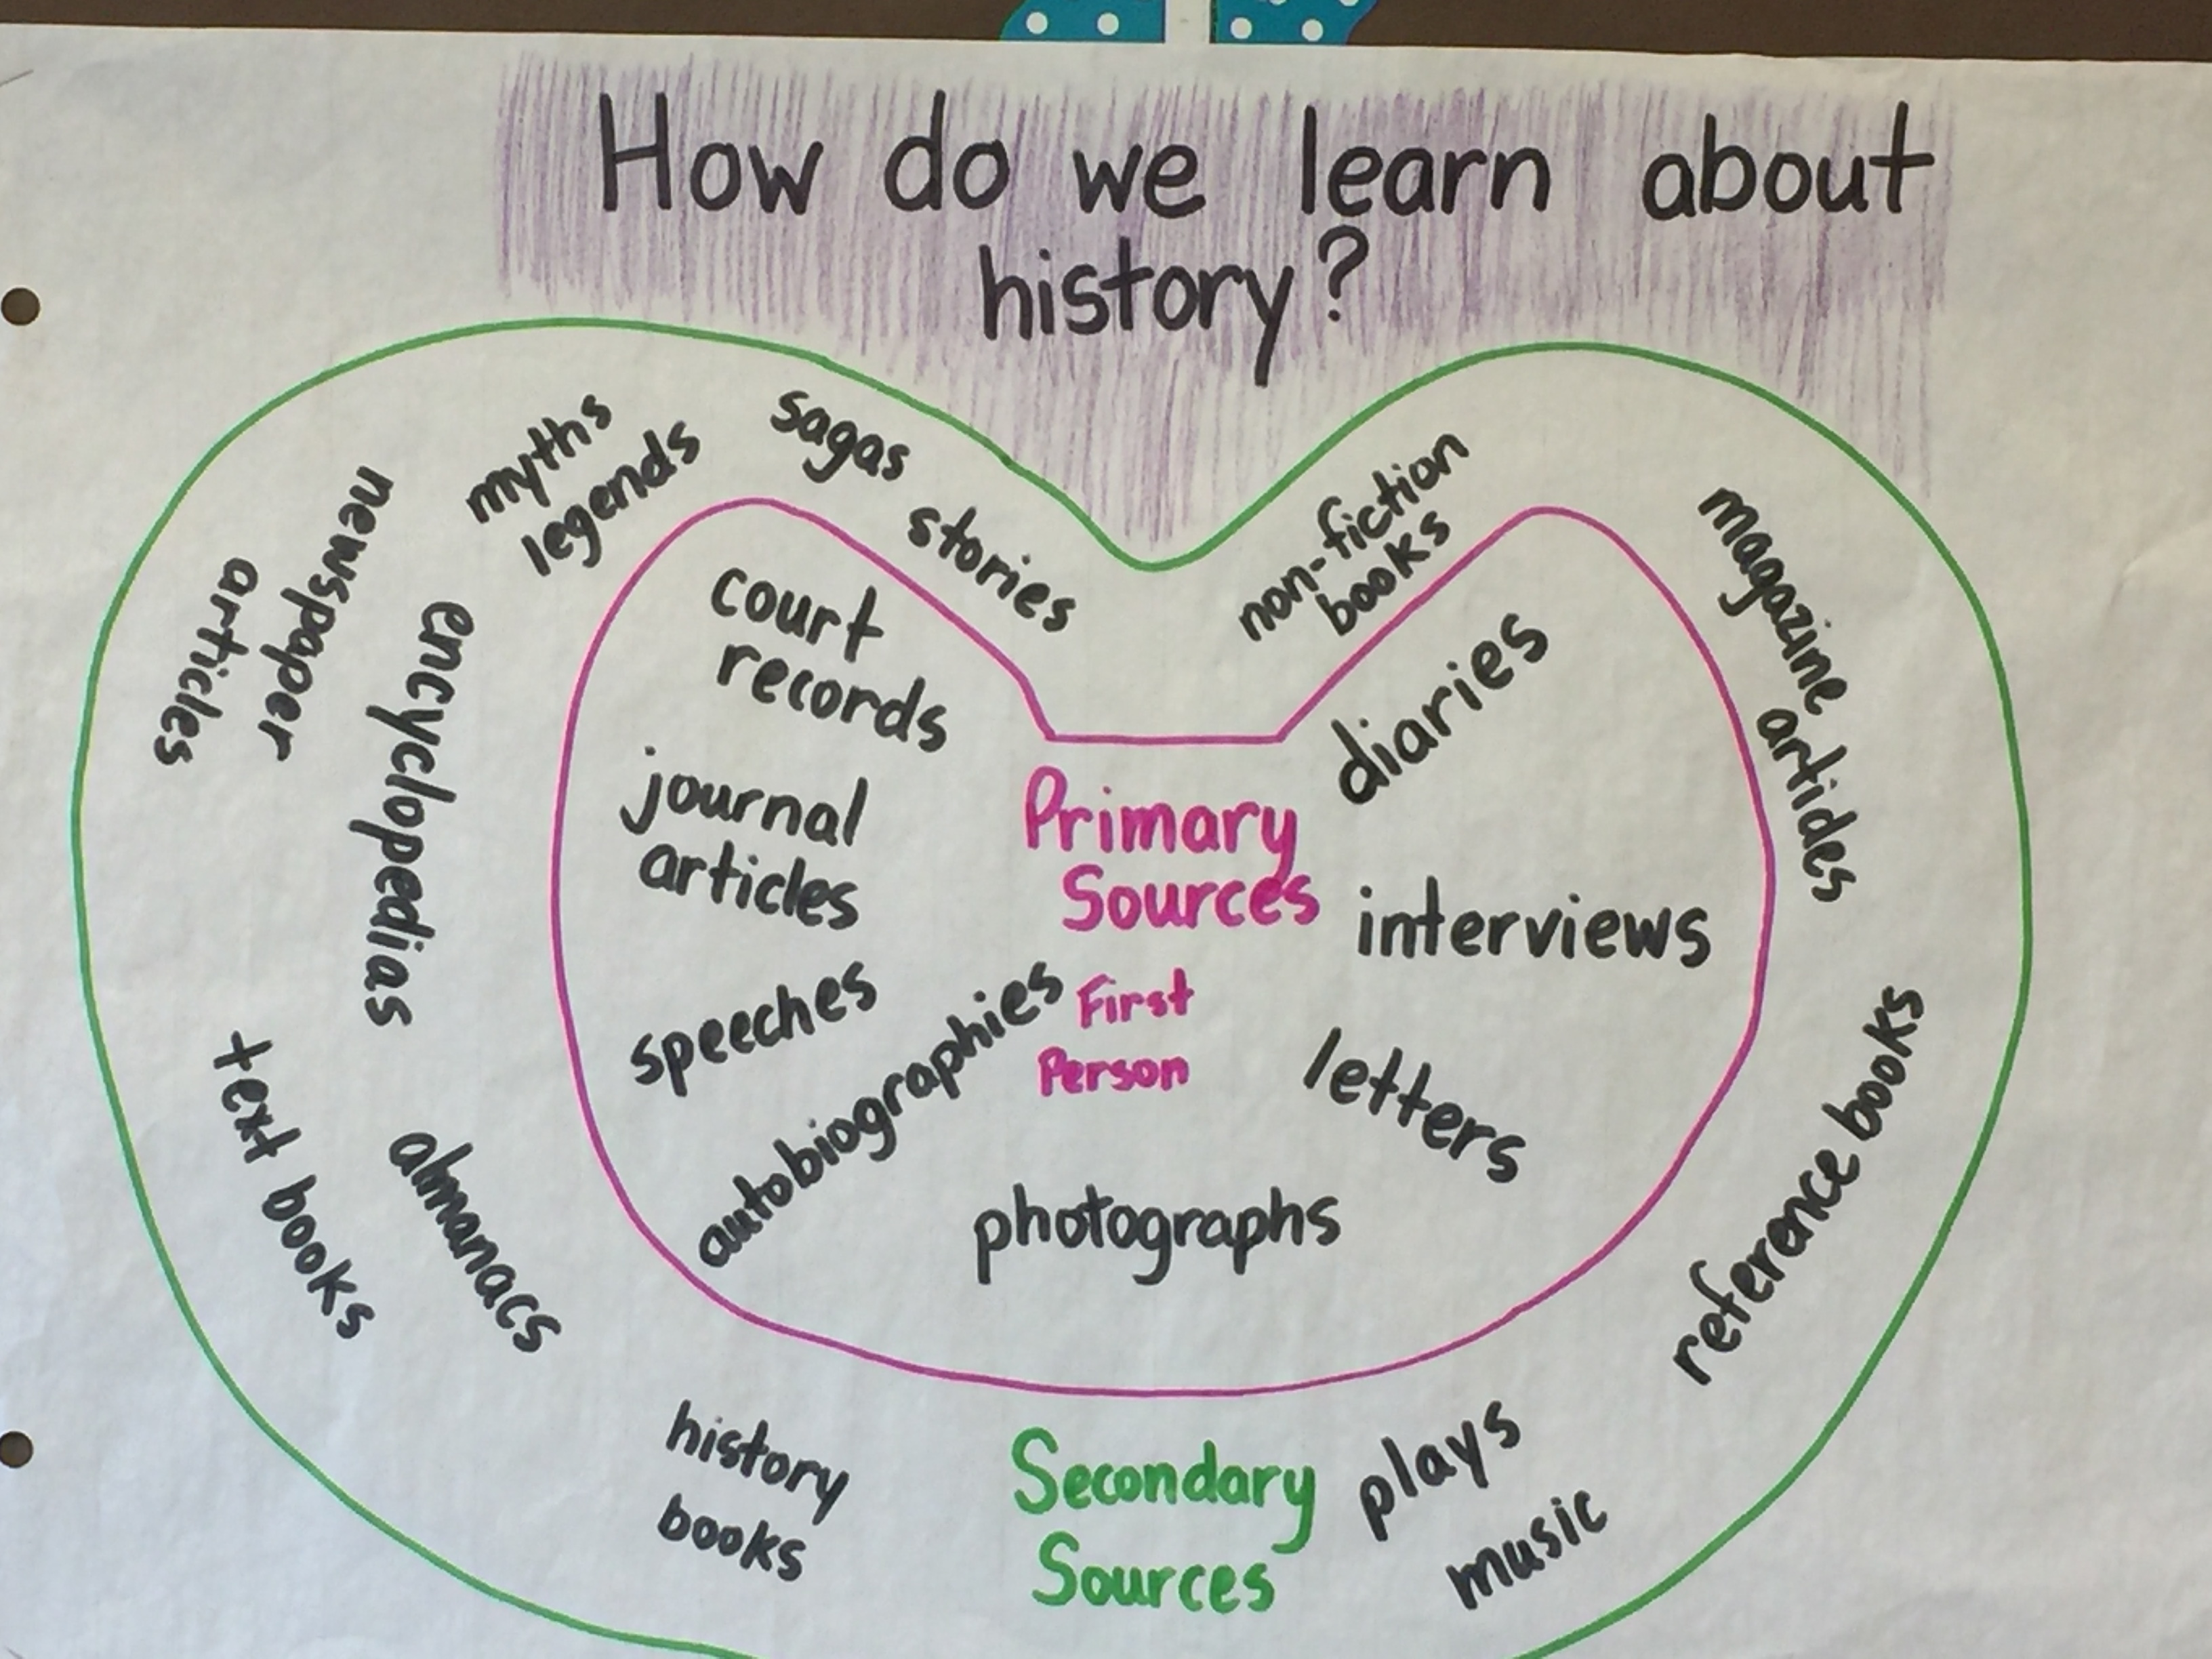 How do we learn about
history?
myths
legends
sagas
stories
non-fiction
books
magazine articles
newspaper
articles
encyclopedias
court
records
diaries
journal
articles
Primary
Sources
First
Person
interviews
speeches
autobiographies
letters
photographs
reference books
text books
almanacs
history
books
Secondary
Sources
plays
music